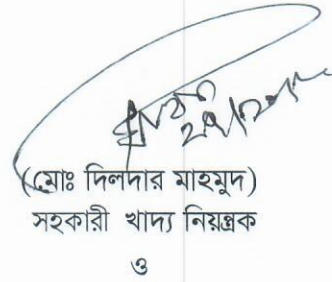 (মোঃ দিলদার মাহমুদ)
সহকারী খাদ্য নিয়ন্ত্রক
ও